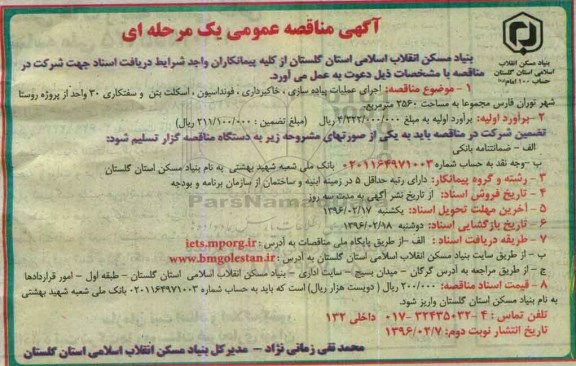 آگهی مناقصه عمومی یک مرحله ای
بنیاد مسکن انقلاب اسلامی استان گلستان از کلیه پیمانکاران واجد شرایط دریافت اسناد جهت شرکت در
مناقصه با مشخصات ذیل دعوت به عمل می آورد.
بنیاد مسکن انقلاب
اسلامی استان گلستان
حساب ۱۰۰ امام
۱ - موضوع مناقصه: اجرای عملیات پیاده سازی ، خاکبرداری ، فونداسیون ، اسکلت بتن و سفتکاری ۳۰ واحد از پروژه روستا
شهر توران فارس مجموعا به مساحت ۲۵۶۰ مترمربع.
۲- برآورد اولیه: برآورد اولیه به مبلغ ۴/۲۲۲/۰۰۰/۰۰۰ ریال (مبلغ تضمین : ۲۱۱/۱۰۰/۰۰۰ ریال)
تضمین شرکت در مناقصه باید به یکی از صورتهای مشروحه زیر به دستگاه مناقصه گزار تسلیم شود:
الف - ضمانتنامه بانکی
ب -وجه نقد به حساب شماره ۰۲۰۱۱۶۴۹۷۱۰۰۳ بانک ملی شعبه شهید بهشتی به نام بنیاد مسکن استان گلستان
۳ - رشته و گروه پیمانکار: دارای رتبه حداقل ۵ در زمینه ابنیه و ساختمان از سازمان برنامه و بودجه
۴ - تاریخ فروش اسناد: از تاریخ نشر آگهی به مدت سه روز
۵ - آخرین مهلت تحویل اسناد: یکشنبه ۱۳۹۶/۰۲/۱۷
۶ - تاریخ بازگشایی اسناد: دوشنبه ۱۳۹۶/۰۲/۱۸
۷ - طریقه دریافت اسناد : الف -از طریق پایگاه ملی مناقصات به آدرس : iets.mporg.ir
ب - از طریق سایت بنیاد مسکن انقلاب اسلامی استان گلستان به آدرس : www.bmgolestan.ir
ج - از طریق مراجعه به آدرس گرگان - میدان بسیج - سایت اداری - بنیاد مسکن انقلاب اسلامی استان گلستان - طبقه اول - امور قراردادها
۸ - قیمت اسناد مناقصه: ۲۰۰/۰۰۰ ریال (دویست هزار ریال) است که باید به حساب شماره ۰۲۰۱۱۶۴۹۷۱۰۰۳ بانک ملی شعبه شهید بهشتی
به نام بنیاد مسکن استان گلستان واریز شود.
تلفن تماس : ۴ -۳۲۴۳۵۰۳۲- ۰۱۷ داخلی ۱۳۲
تاریخ انتشار نوبت دوم: ۱۳۹۶/۰۲/۷
محمد تقی زمانی نژاد - مدیرکل بنیاد مسکن انقلاب اسلامی استان گلستان